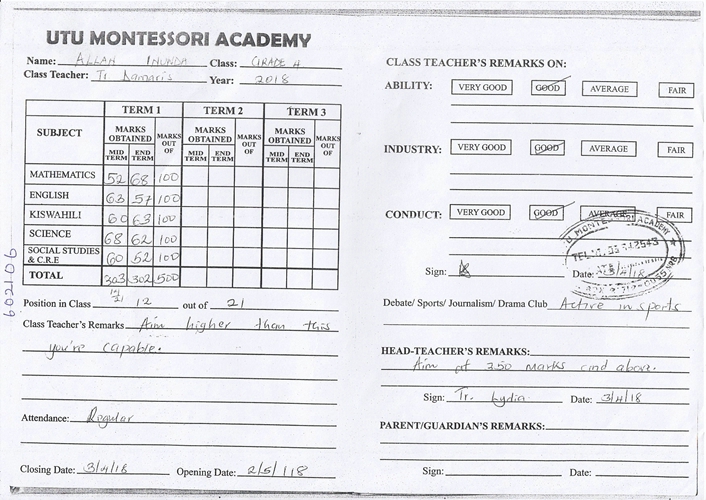 UTU MONTESSORI ACADEMY
Name: ALLAN INUNDA Class: GRADE 4
Class Teacher: Tr. Damaris Year: 2018
SUBJECT TERM 1 TERM 2 TERM 3
MARKS OBTAINED MARKS OUT OF MARKS OBTAINED MARKS OUT OF MARKS OBTAINED MARKS OUT OF
MID TERM END TERM MID TERM END TERM MID TERM END TERM
MATHEMATICS 52 68 100
ENGLISH 63 57 100
KISWAHILI 60 63 100
SCIENCE 68 62 100
SOCIAL STUDIES & C.R.E 60 52 100
TOTAL 303 302 500
Position in Class 12 out of 21
Class Teacher's Remarks Aim higher than this
you're capable.
Attendance: Regular
Closing Date: 3/4/18 Opening Date: 2/5/18
602106
CLASS TEACHER'S REMARKS ON:
ABILITY: VERY GOOD GOOD AVERAGE FAIR
INDUSTRY: VERY GOOD GOOD AVERAGE FAIR
CONDUCT: VERY GOOD GOOD AVERAGE FAIR
Sign: Date: 3/4/18
Debate/ Sports/ Journalism/ Drama Club Active in sports
HEAD-TEACHER'S REMARKS:
Aim at 350 marks and above.
Sign: Tr. Lydia Date: 3/4/18
PARENT/GUARDIAN'S REMARKS:
Sign: Date: